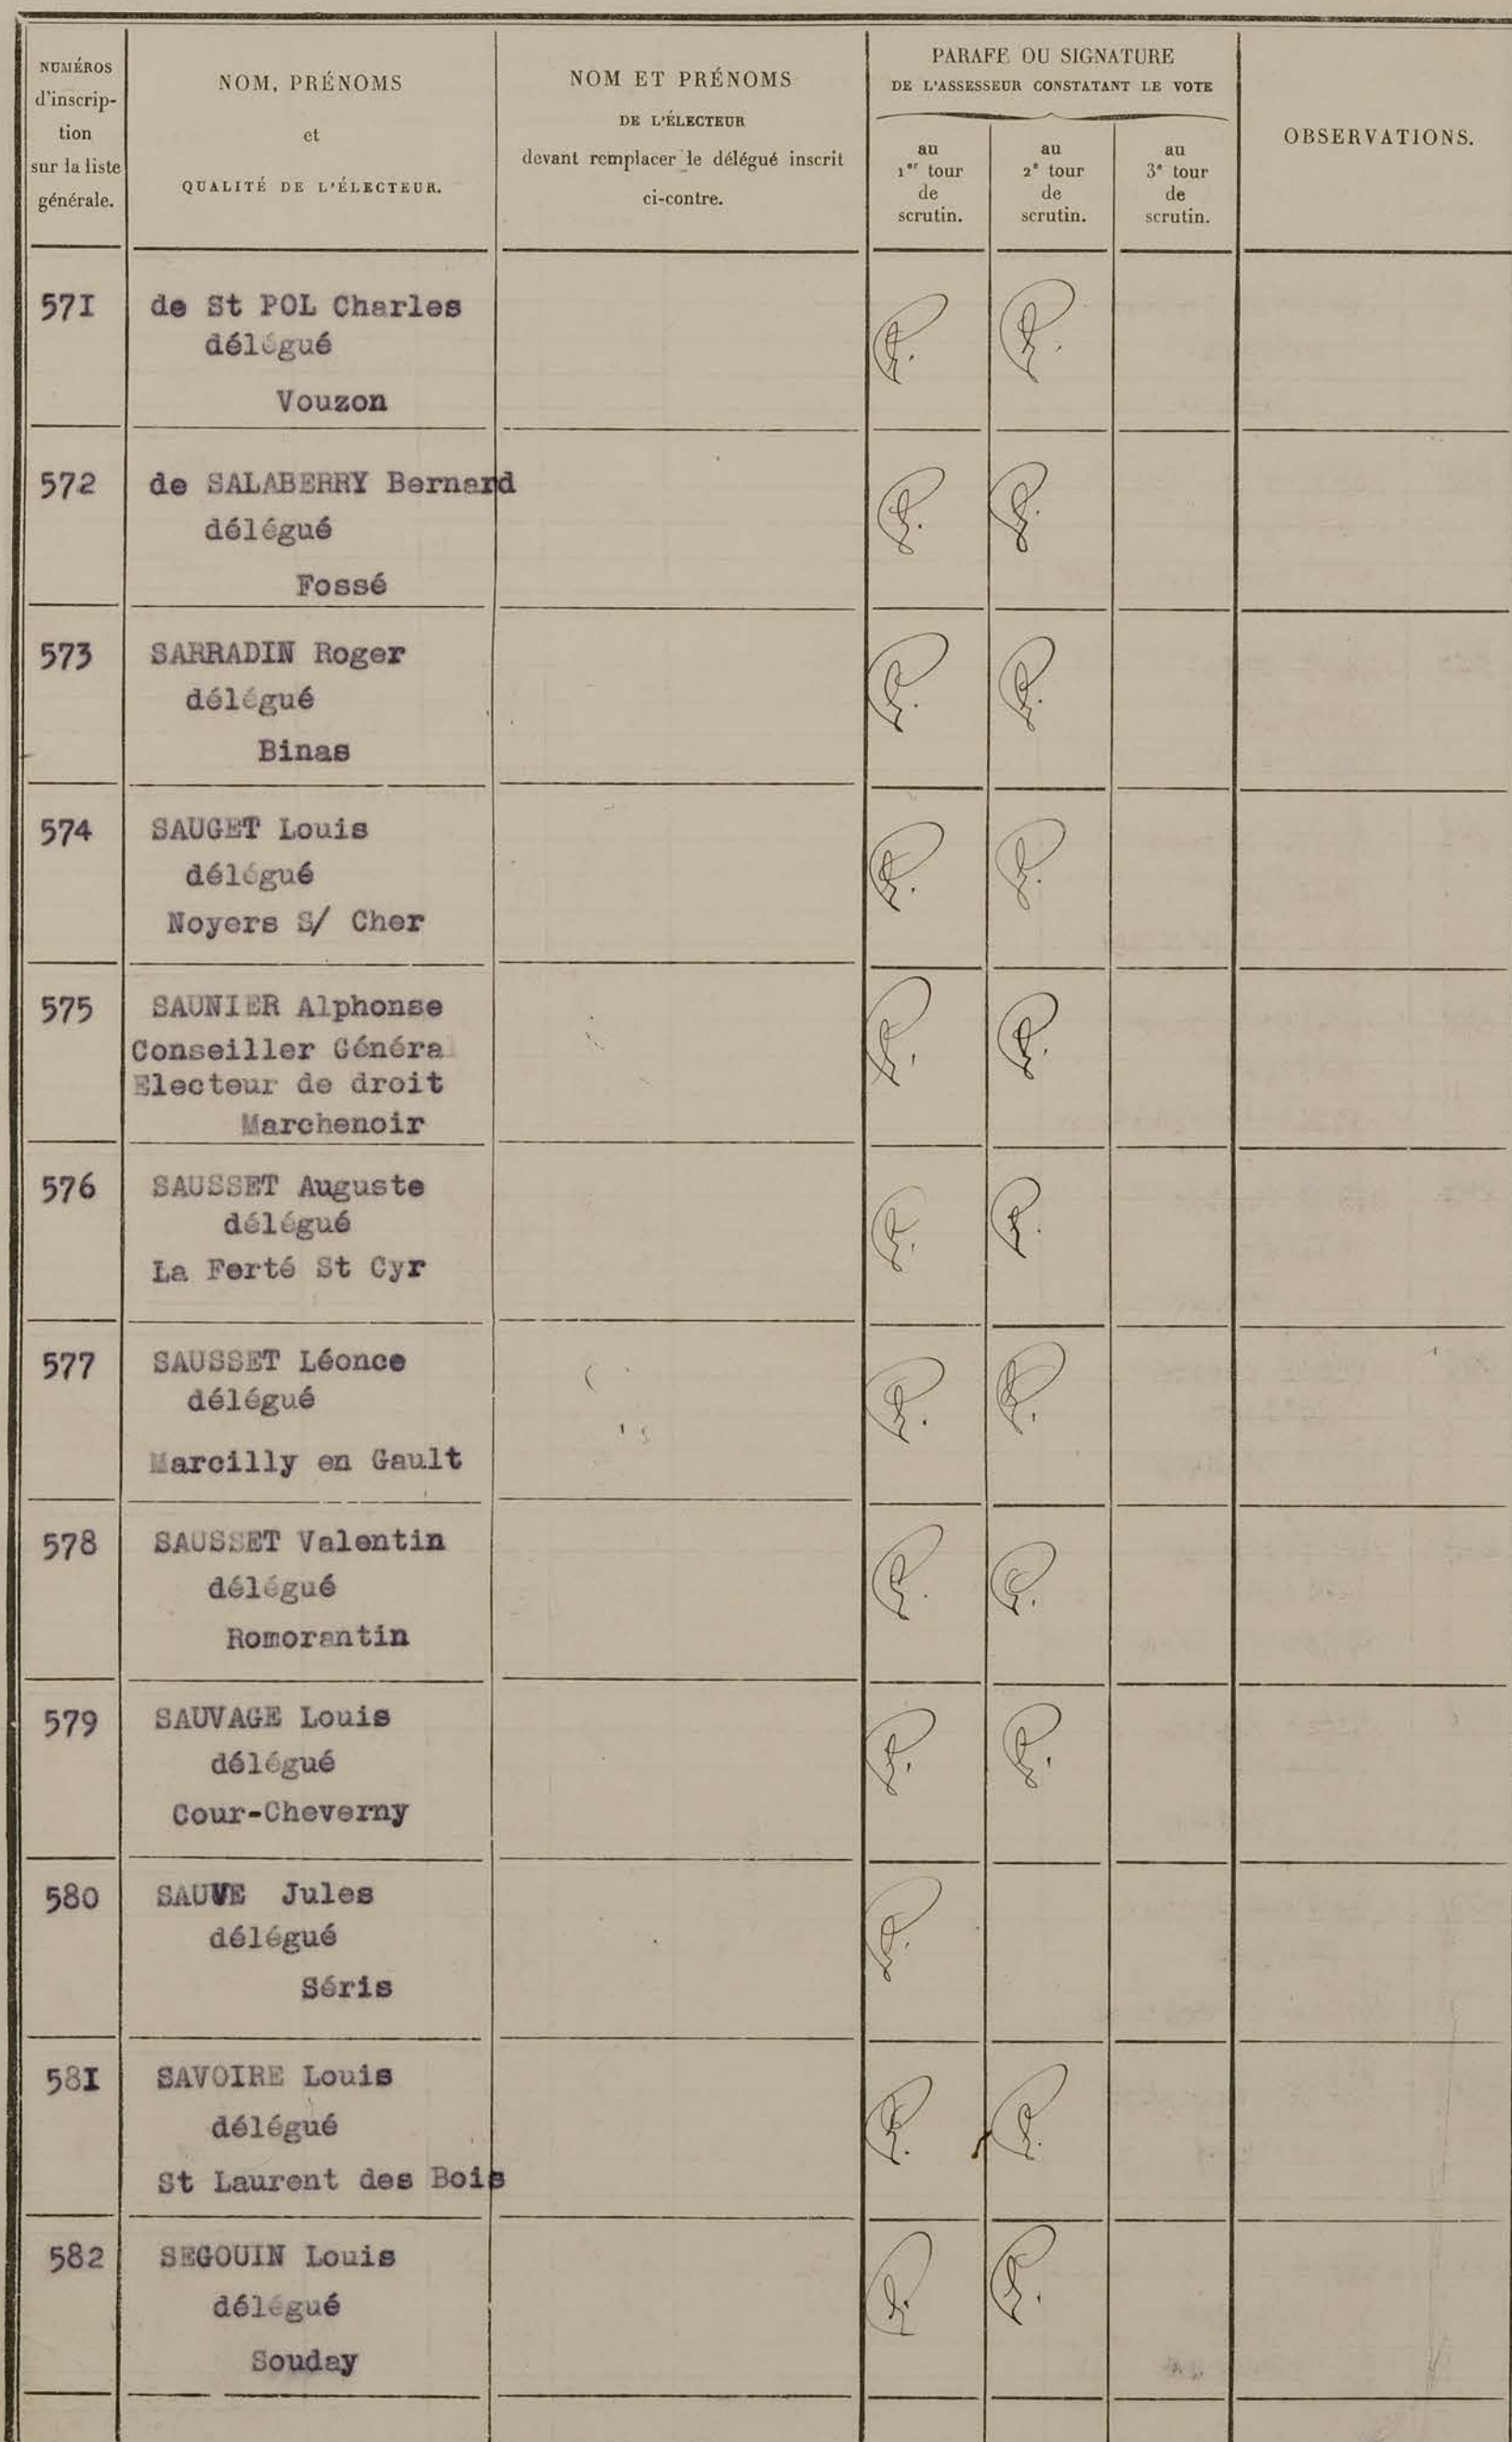 NUMÉROS
d'inscrip-
tion
sur la liste
générale.
NOM, PRÉNOMS
et
QUALITÉ DE L'ÉLECTEUR.
NOM ET PRÉNOMS
DE L'ÉLECTEUR
devant remplacer le délégué inscrit
ci-contre.
PARAFE OU SIGNATURE
DE L'ASSESSEUR CONSTATANT LE VOTE
au
1er tour
de
scrutin.
au
2e tour
de
scrutin.
au
3e tour
de
scrutin.
OBSERVATIONS.
57I de St POL Charles
délégué
Vouzon
572 de SALABERRY Bernard
délégué
Fossé
573 SARRADIN Roger
délégué
Binas
574 SAUGET Louis
délégué
Noyers S/ Cher
575 SAUNIER Alphonse
Conseiller Généra
Electeur de droit
Marchenoir
576 SAUSSET Auguste
délégué
La Ferté St Cyr
577 SAUSSET Léonce
délégué
Marcilly en Gault
578 SAUSSET Valentin
délégué
Romorantin
579 SAUVAGE Louis
délégué
Cour-Cheverny
580 SAUVE Jules
délégué
Séris
58I SAVOIRE Louis
délégué
St Laurent des Bois
582 SEGOUIN Louis
délégué
Souday